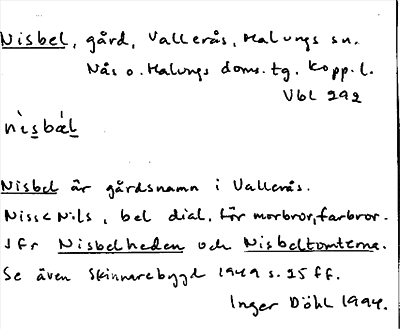 Nisbel, gård, Vallerås, Malungs sn.
Nås o. Malungs doms. tg. Kopp. l.
Vbl 292
nìsbæ̀l
Nisbel är gårdsnamn i Vallerås.
Niss < Nils, bel dial. för morbror, farbror.
Jfr Nisbelheden och Nisbeltomterna.
Se även Skinnarebygd 1949 s. 25 ff.
Inger Döhl 1994.